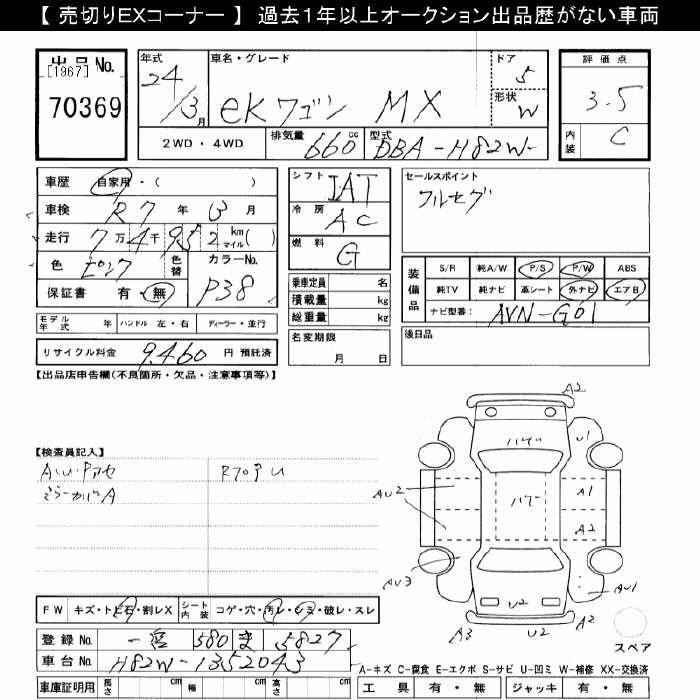 【 売切りEXコーナー 】 過去1年以上オークション出品歴がない車両
出品 No.
[1967]
70369
年式
24/3月
車名・グレード
eKワゴン MX
ドア
5
形状
W
評価点
3.5
内装
C
2WD・4WD
排気量
660cc
型式
DBA-H82W-
車歴 自家用・( )
車検 R7年3月
走行 7万4千952km マイル( )
色 ピンク
色替
カラーNo.
P38
保証書 有・無
モデル年式 年 ハンドル 左・右 ディーラー・並行
リサイクル料金 9,460円 預託済
シフト IAT
冷房 AC
燃料 G
乗車定員 名
積載量 kg
総重量 kg
名変期限 月 日
セールスポイント
フルセグ
装備品
S/R 純A/W P/S P/W ABS
純TV 純ナビ 革シート 外ナビ エアB
ナビ型番: AVN-G01
後日品
【出品店申告欄(不良箇所・欠品・注意事項等)】
【検査員記入】
ミラーカバA
A2
U1
バゲー
AU2
A1
A2
AU3
AU1
U2
A3
U2
A2
スペア
FW キズ・トビ石・割レX
シート内装 コゲ・穴・汚レ・シミ・破レ・スレ
登録 No. 一宮 580 ま 5827
車台 No. H82W-1352043
車庫証明用 長さ cm 幅 cm 高さ cm
A-キズ C-腐食 E-エクボ S-サビ U-凹ミ W-補修 XX-交換済
工具 有・無 ジャッキ 有・無